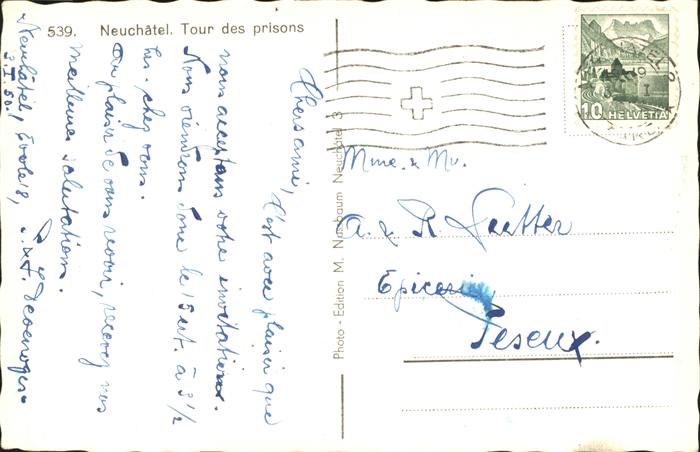 539. Neuchâtel. Tour des prisons
Chers amis,
C'est avec plaisir que
nous acceptons votre invitation.
Nous viendrons donc le 15 crt. à 3 1/2
hrs. chez vous.
Au plaisir de vous revoir, recevez nos
meilleures salutations.
Neuchâtel, Evole 18,
3.I.50.
Photo - Edition M. Nussbaum Neuchâtel 3
HELVETIA
10
Mme. & Mr.
A. & R.
Epicerie
Peseux.